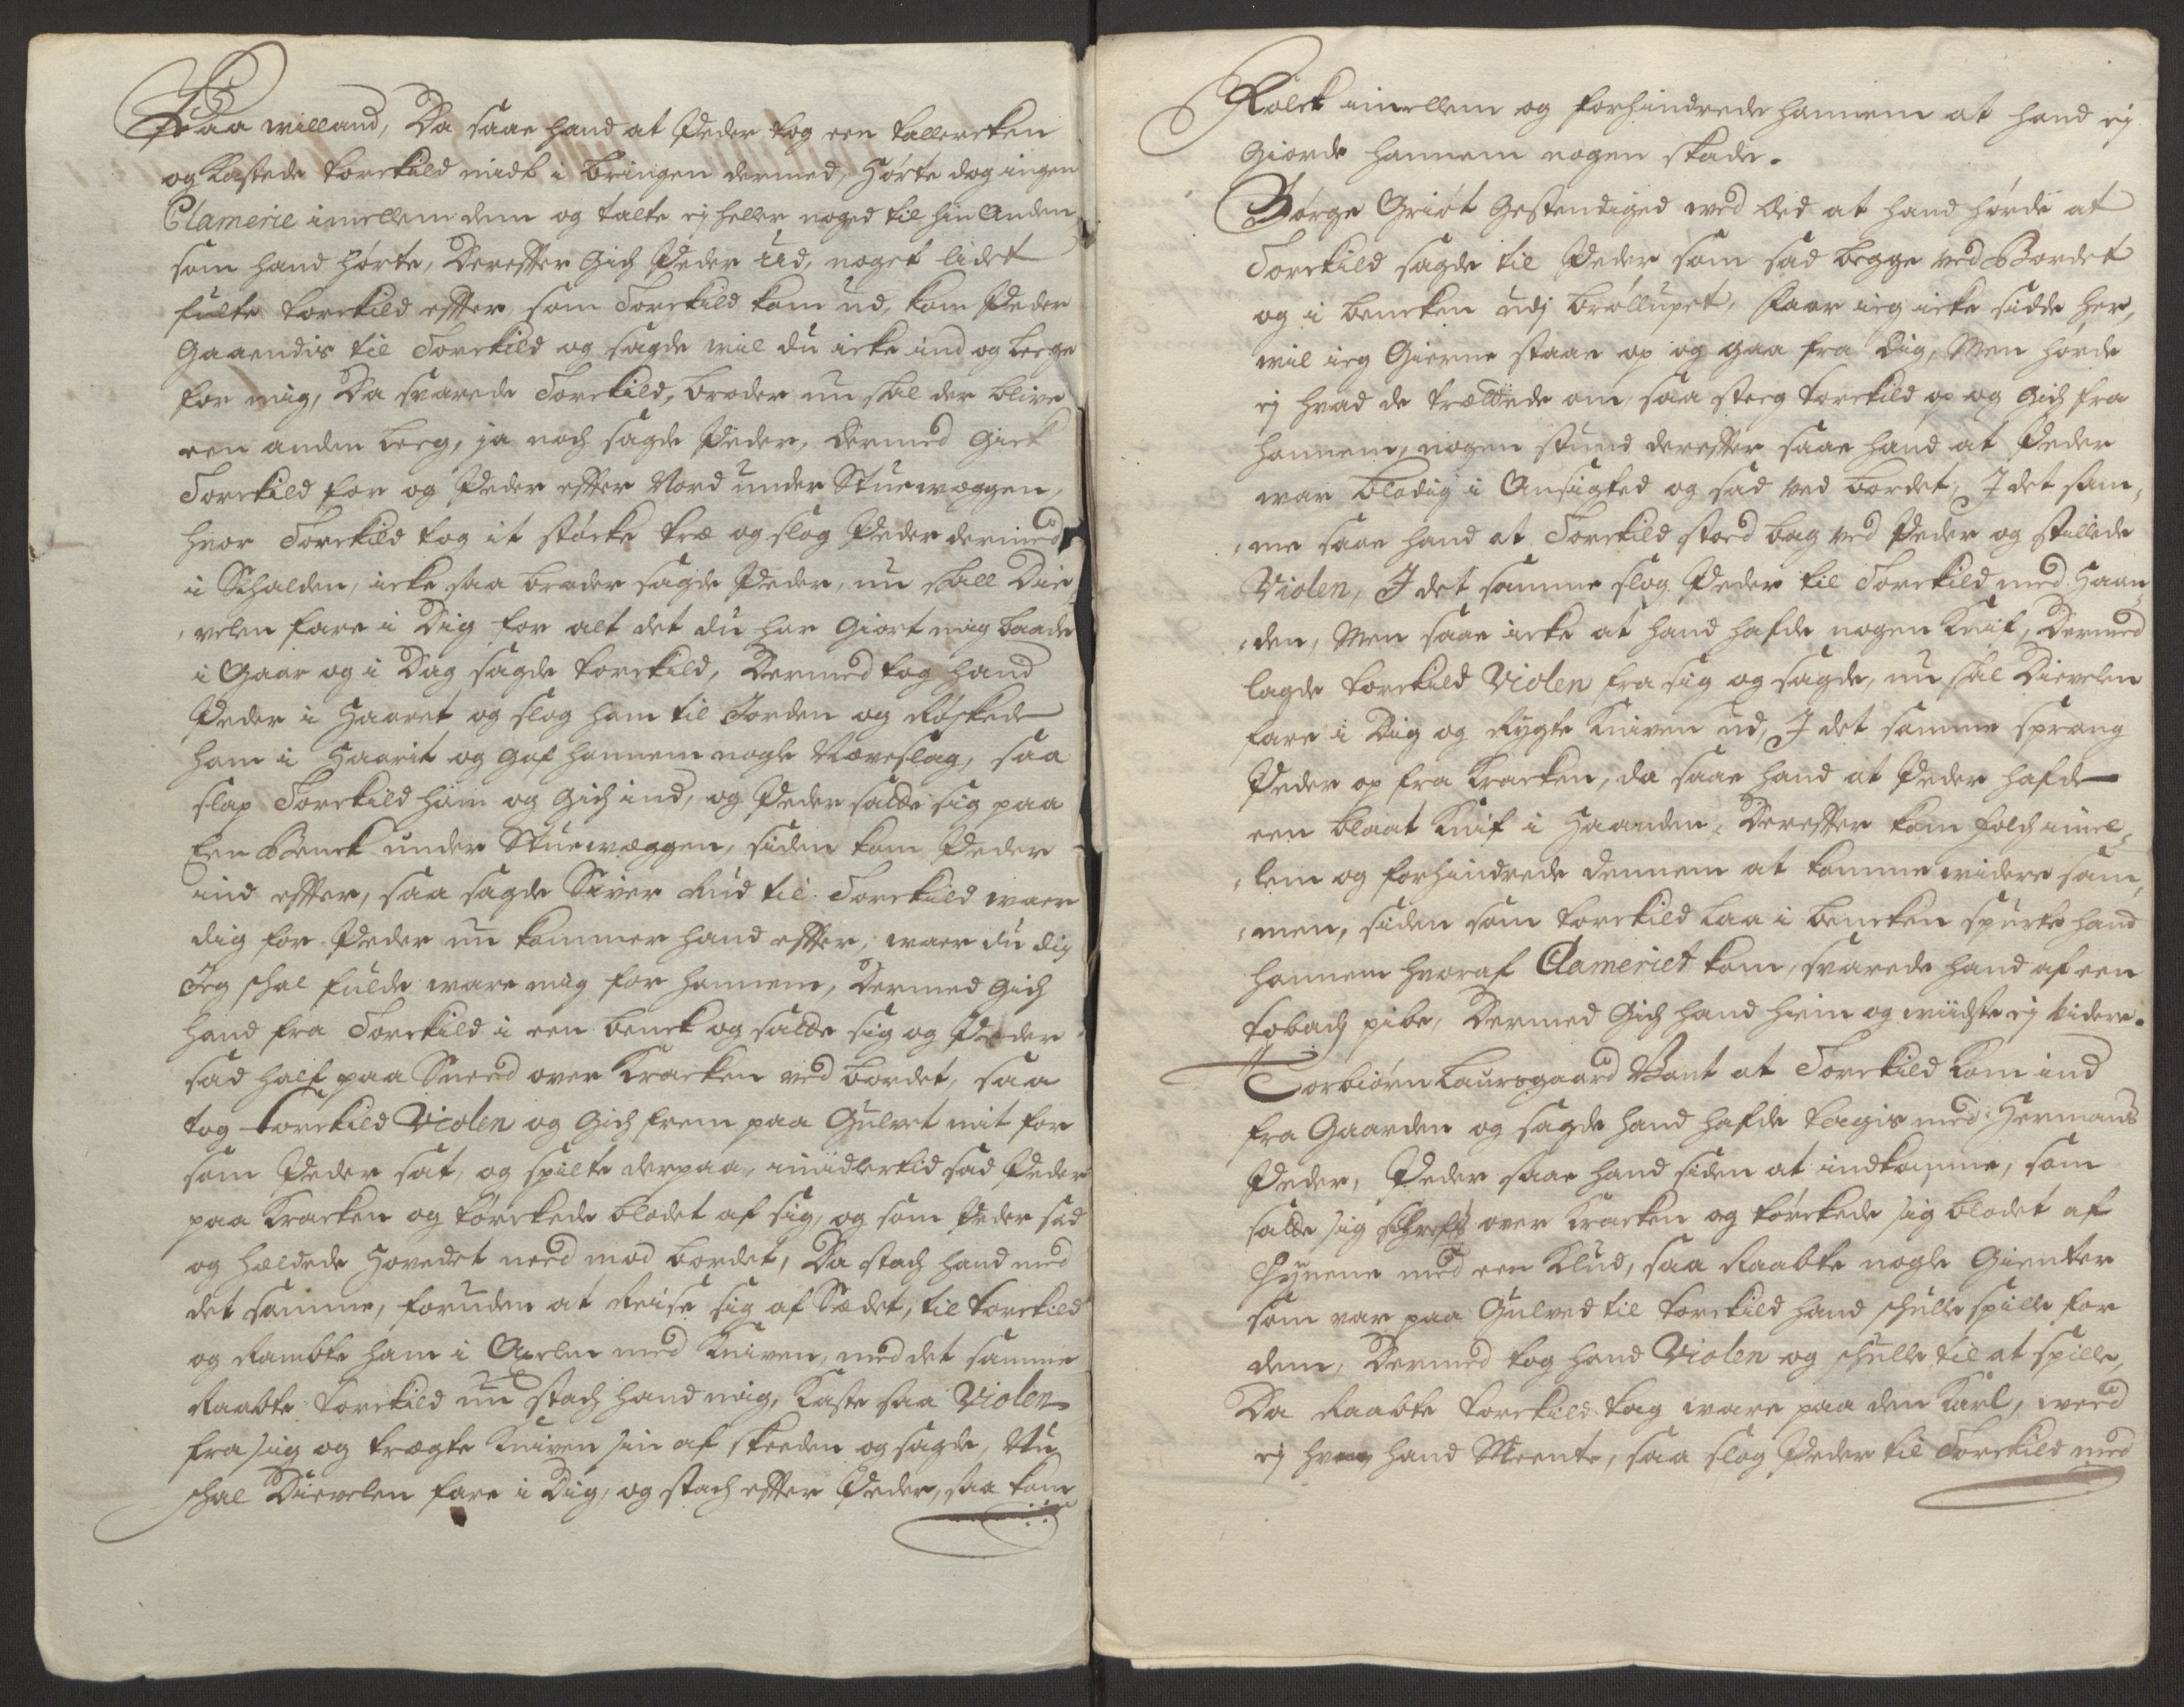 Paa willand, Da saae hand at Peder tog een tallercken
og kastede torckild midt i bringen dermed, Hørte dog ingen
Clamerie imellem dem og talte ej heller noged til hin Anden
som hand hørte, Dereffter Gich Peder ud, noget lidet
fulte torckild effter, som Torckild kom ud, kom Peder
Gaaendis til Torckild og sagde wil du icke ind og leege
for mig, Da svarede Torckild, broder nu skal der blive
een anden leeg, ja noch sagde Peder, dermed Gick
Torckild for og Peder effter Nord under Stuewæggen,
hvor Torckild tog it støcke træ og slog Peder dermed
i Skalden, icke saa broder sagde Peder, nu skall Die¬
velen fare i Dig for alt det du har Giort mig baade
i Gaar og i Dag sagde torckild, Dermed tog hand
Peder i Haaret og slog ham til Jorden og Røskede
ham i Haarit og Gaf hannem nogle Næveslag, saa
slap Torckild ham og Gich ind, og Peder satte sig paa
Een Benck under Stuewæggen, siden kom Peder
ind effter, saa sagde Siver Rud til Torckild waer
dig for Peder nu kommer hand effter, waer du dig
Jeg schal fulde ware mig for hannem, Dermed Gich
hand fra Torckild i een benck og satte sig og Peder
sad half paa Sneed over Kracken ved bordet, saa
tog torckild Violen og Gich frem paa Gulvet mit for
som Peder sat, og spilte derpaa, imidlertid sad Peder
paa Kracken og tørckede blodet af sig, og som Peder sad
og hældede Hovedet need mod bordet, Da stach hand med
det samme, foruden at Reise sig af Sædet, til torckild
og Ramte ham i Axelen med Kniven, med det samme
Raabte torckild nu stach hand mig, kaste saa Violen
fra sig og trægte Kniven sin af skeeden og sagde, Nu
schal Dievelen fare i Dig, og stach effter Peder, saa kom
Folck imellem og forhindrede hannem at hand ej
Giorde hannem nogen skade.
Børge Griøt Gestendiged wed Eed at hand hørde at
Torckild sagde til Peder som sad begge ved Bordet
og i bencken udj brøllupet, Faar ieg icke sidde her,
wil ieg Gierne staae op og gaa fra dig, Men hørde
ej hvad de trættede om, saa steeg torckild op og Gich fra
hannem, nogen stund dereffter saae hand at Peder
war blodig i Ansigted og sad ved bordet, I det sam¬
me saae hand at Torckild stoed bag ved Peder og stillede
Violen, I det samme slog Peder til Torckild med Haan¬
den, Men saae icke at hand hafde nogen Knif, Dermed
lagde torckild Violen fra sig og sagde, nu skal Dievelen
fare i Dig og Rygte Kniven ud, I det samme sprang
Peder op fra Kracken, da saae hand at Peder hafde
een blaat Knif i Haanden, Dereffter kom folch imel¬
lem og forhindrede dennem at komme widere sam¬
men, siden som torckild laa i bencken spurte hand
hannem hvoraf Clameriet kom, svarede hand af een
tobach pibe, Dermed Gich hand hiem og widste ej videre.
Torbiørn Laursgaard Vant at Torckild kom ind
fra Gaarden og sagde hand hafde tagis med Hermans
Peder, Peder saae hand siden at indkomme, som
satte sig over Kracken og tørckede sig blodet af
Øynene med een Klud, saa Raabte nogle Gienter
som var paa Gulved til torckild hand schulle spille for
dem, Dermed tog hand Violen og schulle til at spille,
Da Raabte torckild tag ware paa den Karl, weed
ej hvem hand Meente, saa slog Peder til Torckild med